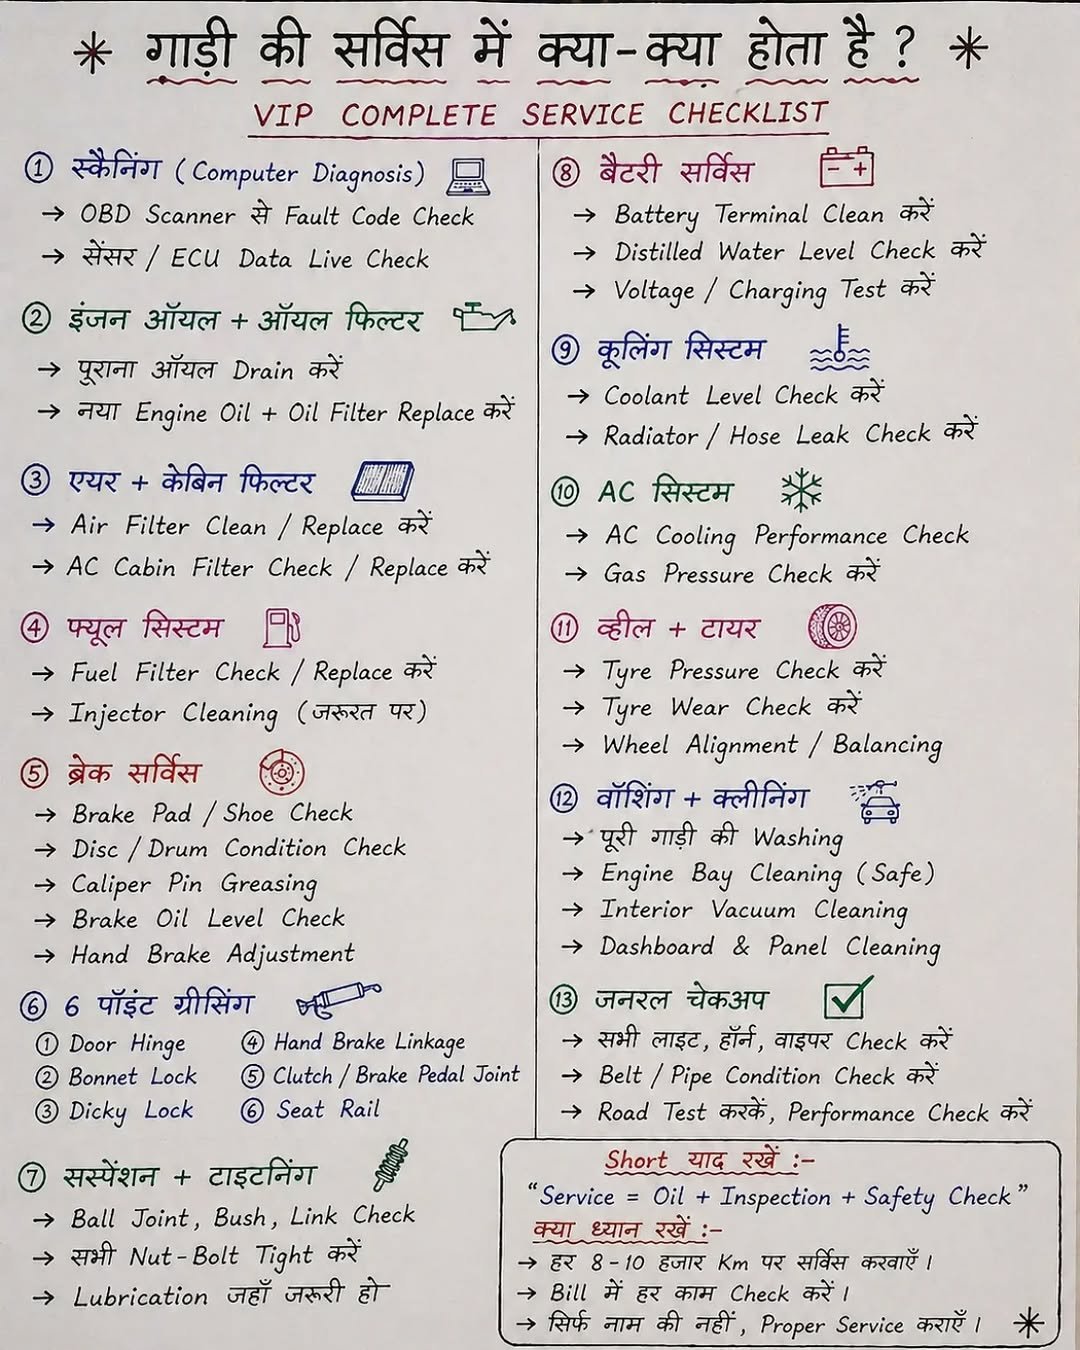 * गाड़ी की सर्विस में क्या-क्या होता है ? *
VIP COMPLETE SERVICE CHECKLIST
① स्कैनिंग (Computer Diagnosis)
→ OBD Scanner से Fault Code Check
→ सेंसर / ECU Data Live Check
② इंजन ऑयल + ऑयल फिल्टर
→ पुराना ऑयल Drain करें
→ नया Engine Oil + Oil Filter Replace करें
③ एयर + केबिन फिल्टर
→ Air Filter Clean / Replace करें
→ AC Cabin Filter Check / Replace करें
④ फ्यूल सिस्टम
→ Fuel Filter Check / Replace करें
→ Injector Cleaning (जरूरत पर)
⑤ ब्रेक सर्विस
→ Brake Pad / Shoe Check
→ Disc / Drum Condition Check
→ Caliper Pin Greasing
→ Brake Oil Level Check
→ Hand Brake Adjustment
⑥ 6 पॉइंट ग्रीसिंग
① Door Hinge ④ Hand Brake Linkage
② Bonnet Lock ⑤ Clutch / Brake Pedal Joint
③ Dicky Lock ⑥ Seat Rail
⑦ सस्पेंशन + टाइटनिंग
→ Ball Joint, Bush, Link Check
→ सभी Nut-Bolt Tight करें
→ Lubrication जहाँ जरूरी हो
⑧ बैटरी सर्विस
→ Battery Terminal Clean करें
→ Distilled Water Level Check करें
→ Voltage / Charging Test करें
⑨ कूलिंग सिस्टम
→ Coolant Level Check करें
→ Radiator / Hose Leak Check करें
⑩ AC सिस्टम
→ AC Cooling Performance Check
→ Gas Pressure Check करें
⑪ व्हील + टायर
→ Tyre Pressure Check करें
→ Tyre Wear Check करें
→ Wheel Alignment / Balancing
⑫ वॉशिंग + क्लीनिंग
→ पूरी गाड़ी की Washing
→ Engine Bay Cleaning (Safe)
→ Interior Vacuum Cleaning
→ Dashboard & Panel Cleaning
⑬ जनरल चेकअप
→ सभी लाइट, हॉर्न, वाइपर Check करें
→ Belt / Pipe Condition Check करें
→ Road Test करकें, Performance Check करें
Short याद रखें :-
“Service = Oil + Inspection + Safety Check”
क्या ध्यान रखें :-
→ हर 8-10 हजार Km पर सर्विस करवाएँ।
→ Bill में हर काम Check करें।
→ सिर्फ नाम की नहीं, Proper Service कराएँ। *